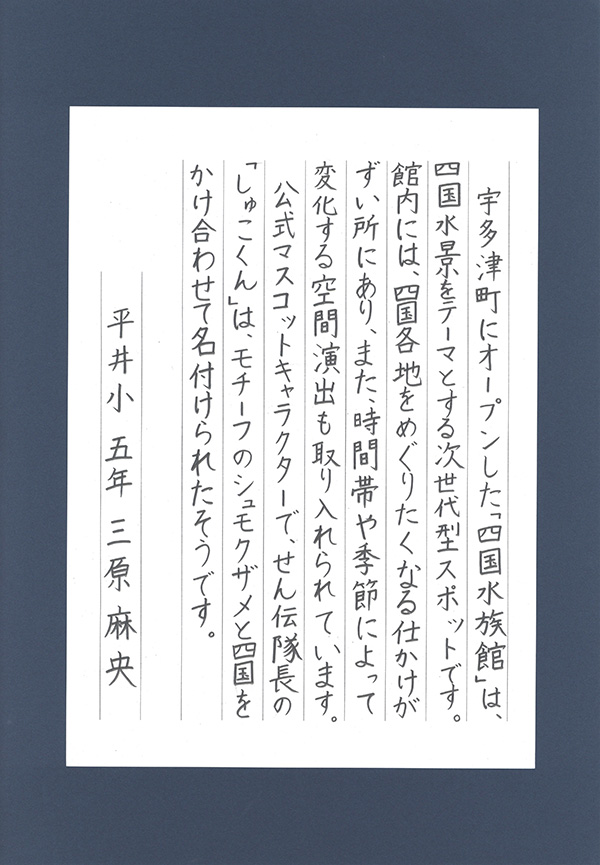 宇多津町にオープンした「四国水族館」は、
四国水景をテーマとする次世代型スポットです。
館内には、四国各地をめぐりたくなる仕かけが
ずい所にあり、また、時間帯や季節によって
変化する空間演出も取り入れられています。
公式マスコットキャラクターで、せん伝隊長の
「しゅこくん」は、モチーフのシュモクザメと四国を
かけ合わせて名付けられたそうです。
平井小 五年 三原麻央